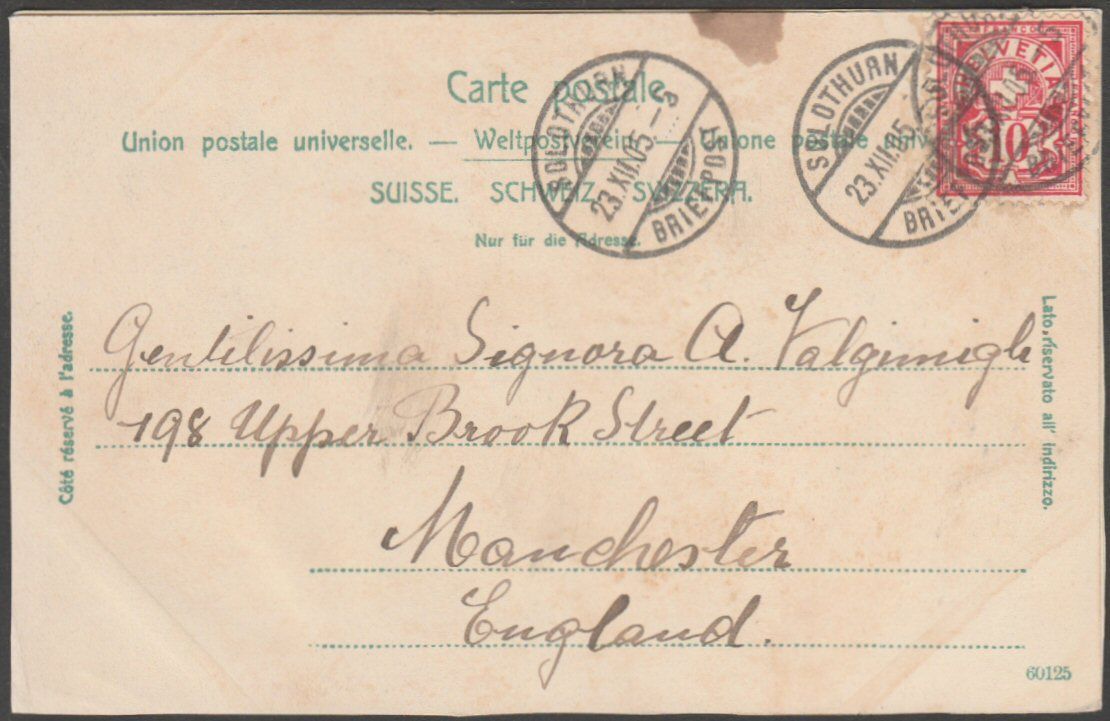 Carte postale.
Union postale universelle. — Weltpostverein — Unione postale
SUISSE. SCHWEIZ. SVIZZERA.
Nur für die Adresse.
SOLOTHURN
23.XII.05.–5
BRIEFPOST
SOLOTHURN
23.XII.05
BRIEFPOST
FRANCO
HELVETIA
10
Côté réservé à l'adresse.
Gentilissima Signora A. Valgimigli
198 Upper Brook Street
Manchester
England.
Lato riservato all' indirizzo.
60125